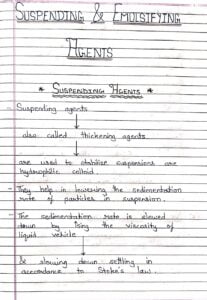 SUSPENDING & EMULSIFYING
AGENTS
* SUSPENDING AGENTS *
- Suspending agents
also called thickening agents
are used to stabilise suspensions are
hydrophilic colloid
- They help in lowering the sedimentation
rate of particles in suspension.
- The sedimentation rate is slowed
down by ↑sing the viscosity of
liquid vehicle
& slowing down settling in
accordance to Stoke's law.